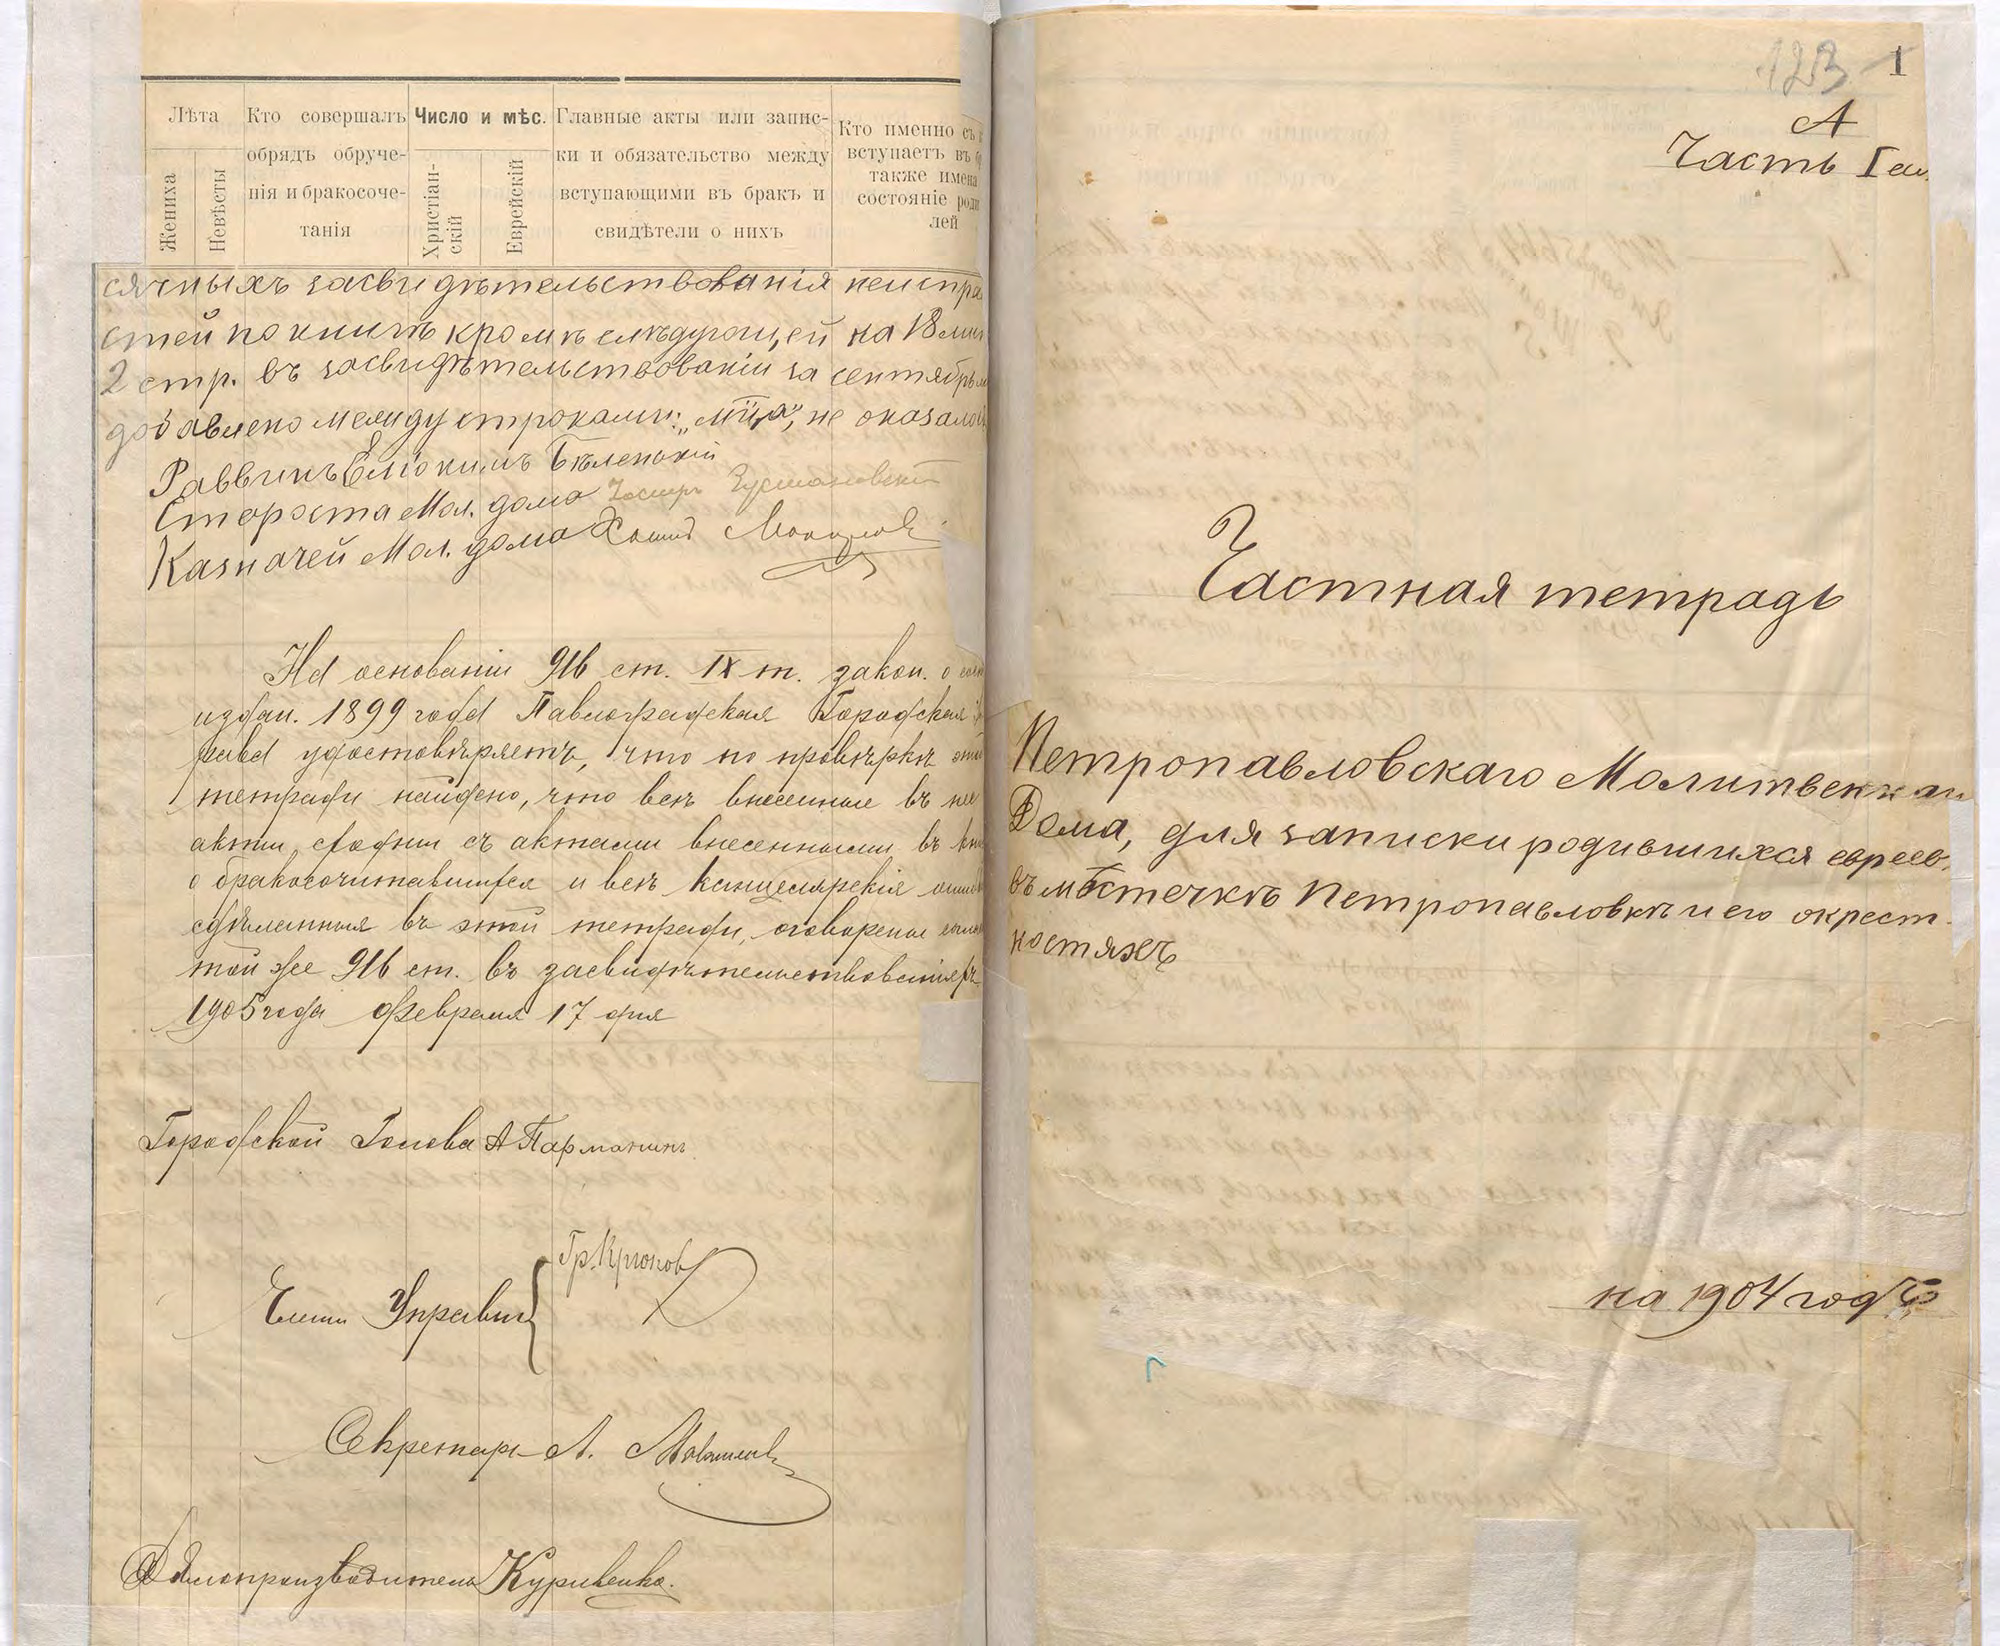 Лѣта
Жениха
Невѣсты
Кто совершалъ
обрядъ обруче-
нія и бракосоче-
танія
Число и мѣс.
Христіан-
скій
Еврейскій
Главные акты или запис-
ки и обязательство между
вступающими въ бракъ и
свидѣтели о нихъ
Кто именно съ
вступаетъ въ
также имена
состояніе роди
лей
сячныхъ засвидѣтельствованія неиспра
стей по книгѣ кромѣ слѣдующей на 18 лис
2 стр. въ засвидѣтельствованіи за сентябрь
добавлено между строками: не оказалос
Раввинъ Еліокимъ Бѣленькій
Староста Мол. дома
Казначей Мол. дома
На основаніи 916 ст. IX т. закон. о
издан. 1899 года Павлоградская Городская
рава удостовѣряетъ, что по провѣркѣ этой
тетради найдено, что всѣ внесенные въ нее
акты сходны съ актами внесенными въ кни
о бракосочитавшихся и всѣ канцелярскія ошиб
сдѣланныя въ этой тетради, оговорены
той же 916 ст. въ засвидѣтельствованіяхъ
1905 года февраля 17 дня
Городской Голова А Парманинъ
Члены Управы
Гр. Крюков
Секретарь А.
Дѣлопроизводитель Куриленко.
123
1
А
Часть I ая
Частная тетрадь
Петропавловскаго Молитвеннаго
Дома, для записки родившихся евреев
въ мѣстечкѣ Петропавловкѣ и его окрест-
ностяхъ
на 1904 годъ